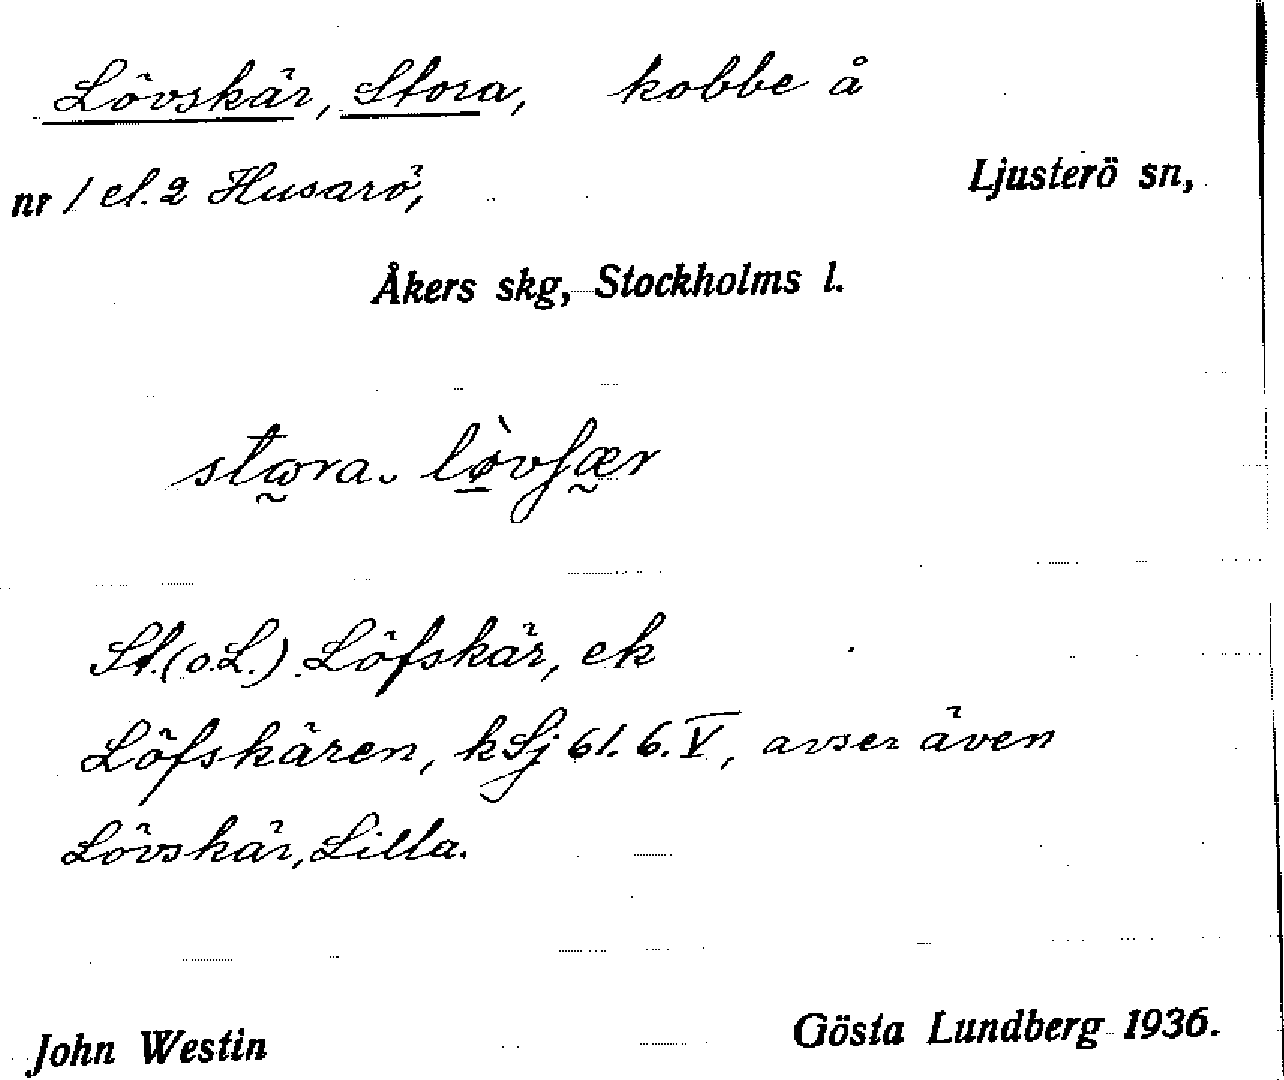 Lövskär, Stora, kobbe å
nr 1 el. 2 Husarö, Ljusterö sn,
Åkers skg, Stockholms l.
stɷra. lø̀vʃær
St. (o. L.) Löfskär, ek
Löfskären, kSj 61. 6. V, avser även
Lövskär, Lilla.
John Westin Gösta Lundberg 1936.